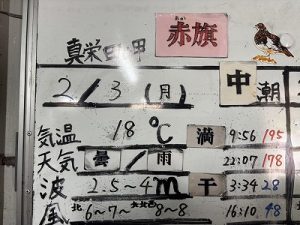 あか
真栄田岬 赤旗
2/3(月) 中潮
気温 18℃ 満 9:56 195
天気 曇/雨 22:07 178
波 2.5~4m 干 3:34 28
風 北6~7~北北西8~8 16:10 48